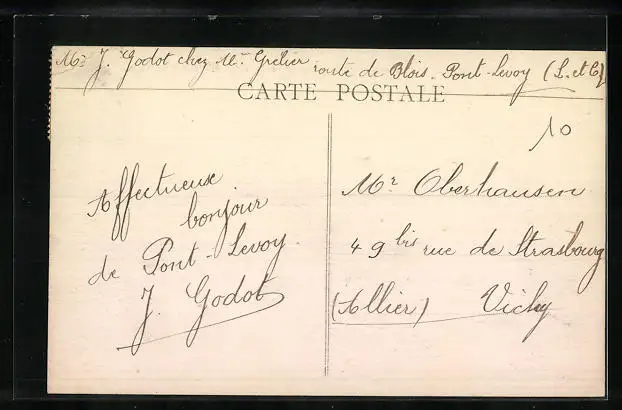 Mr J. Godot chez Mr Grelier route de Blois. Pont-Levoy (L. et C)
CARTE POSTALE
10
Affectueux
bonjour
de Pont-Levoy
J. Godot
Mr Oberhausen
49 bis rue de Strasbourg
(Allier) Vichy